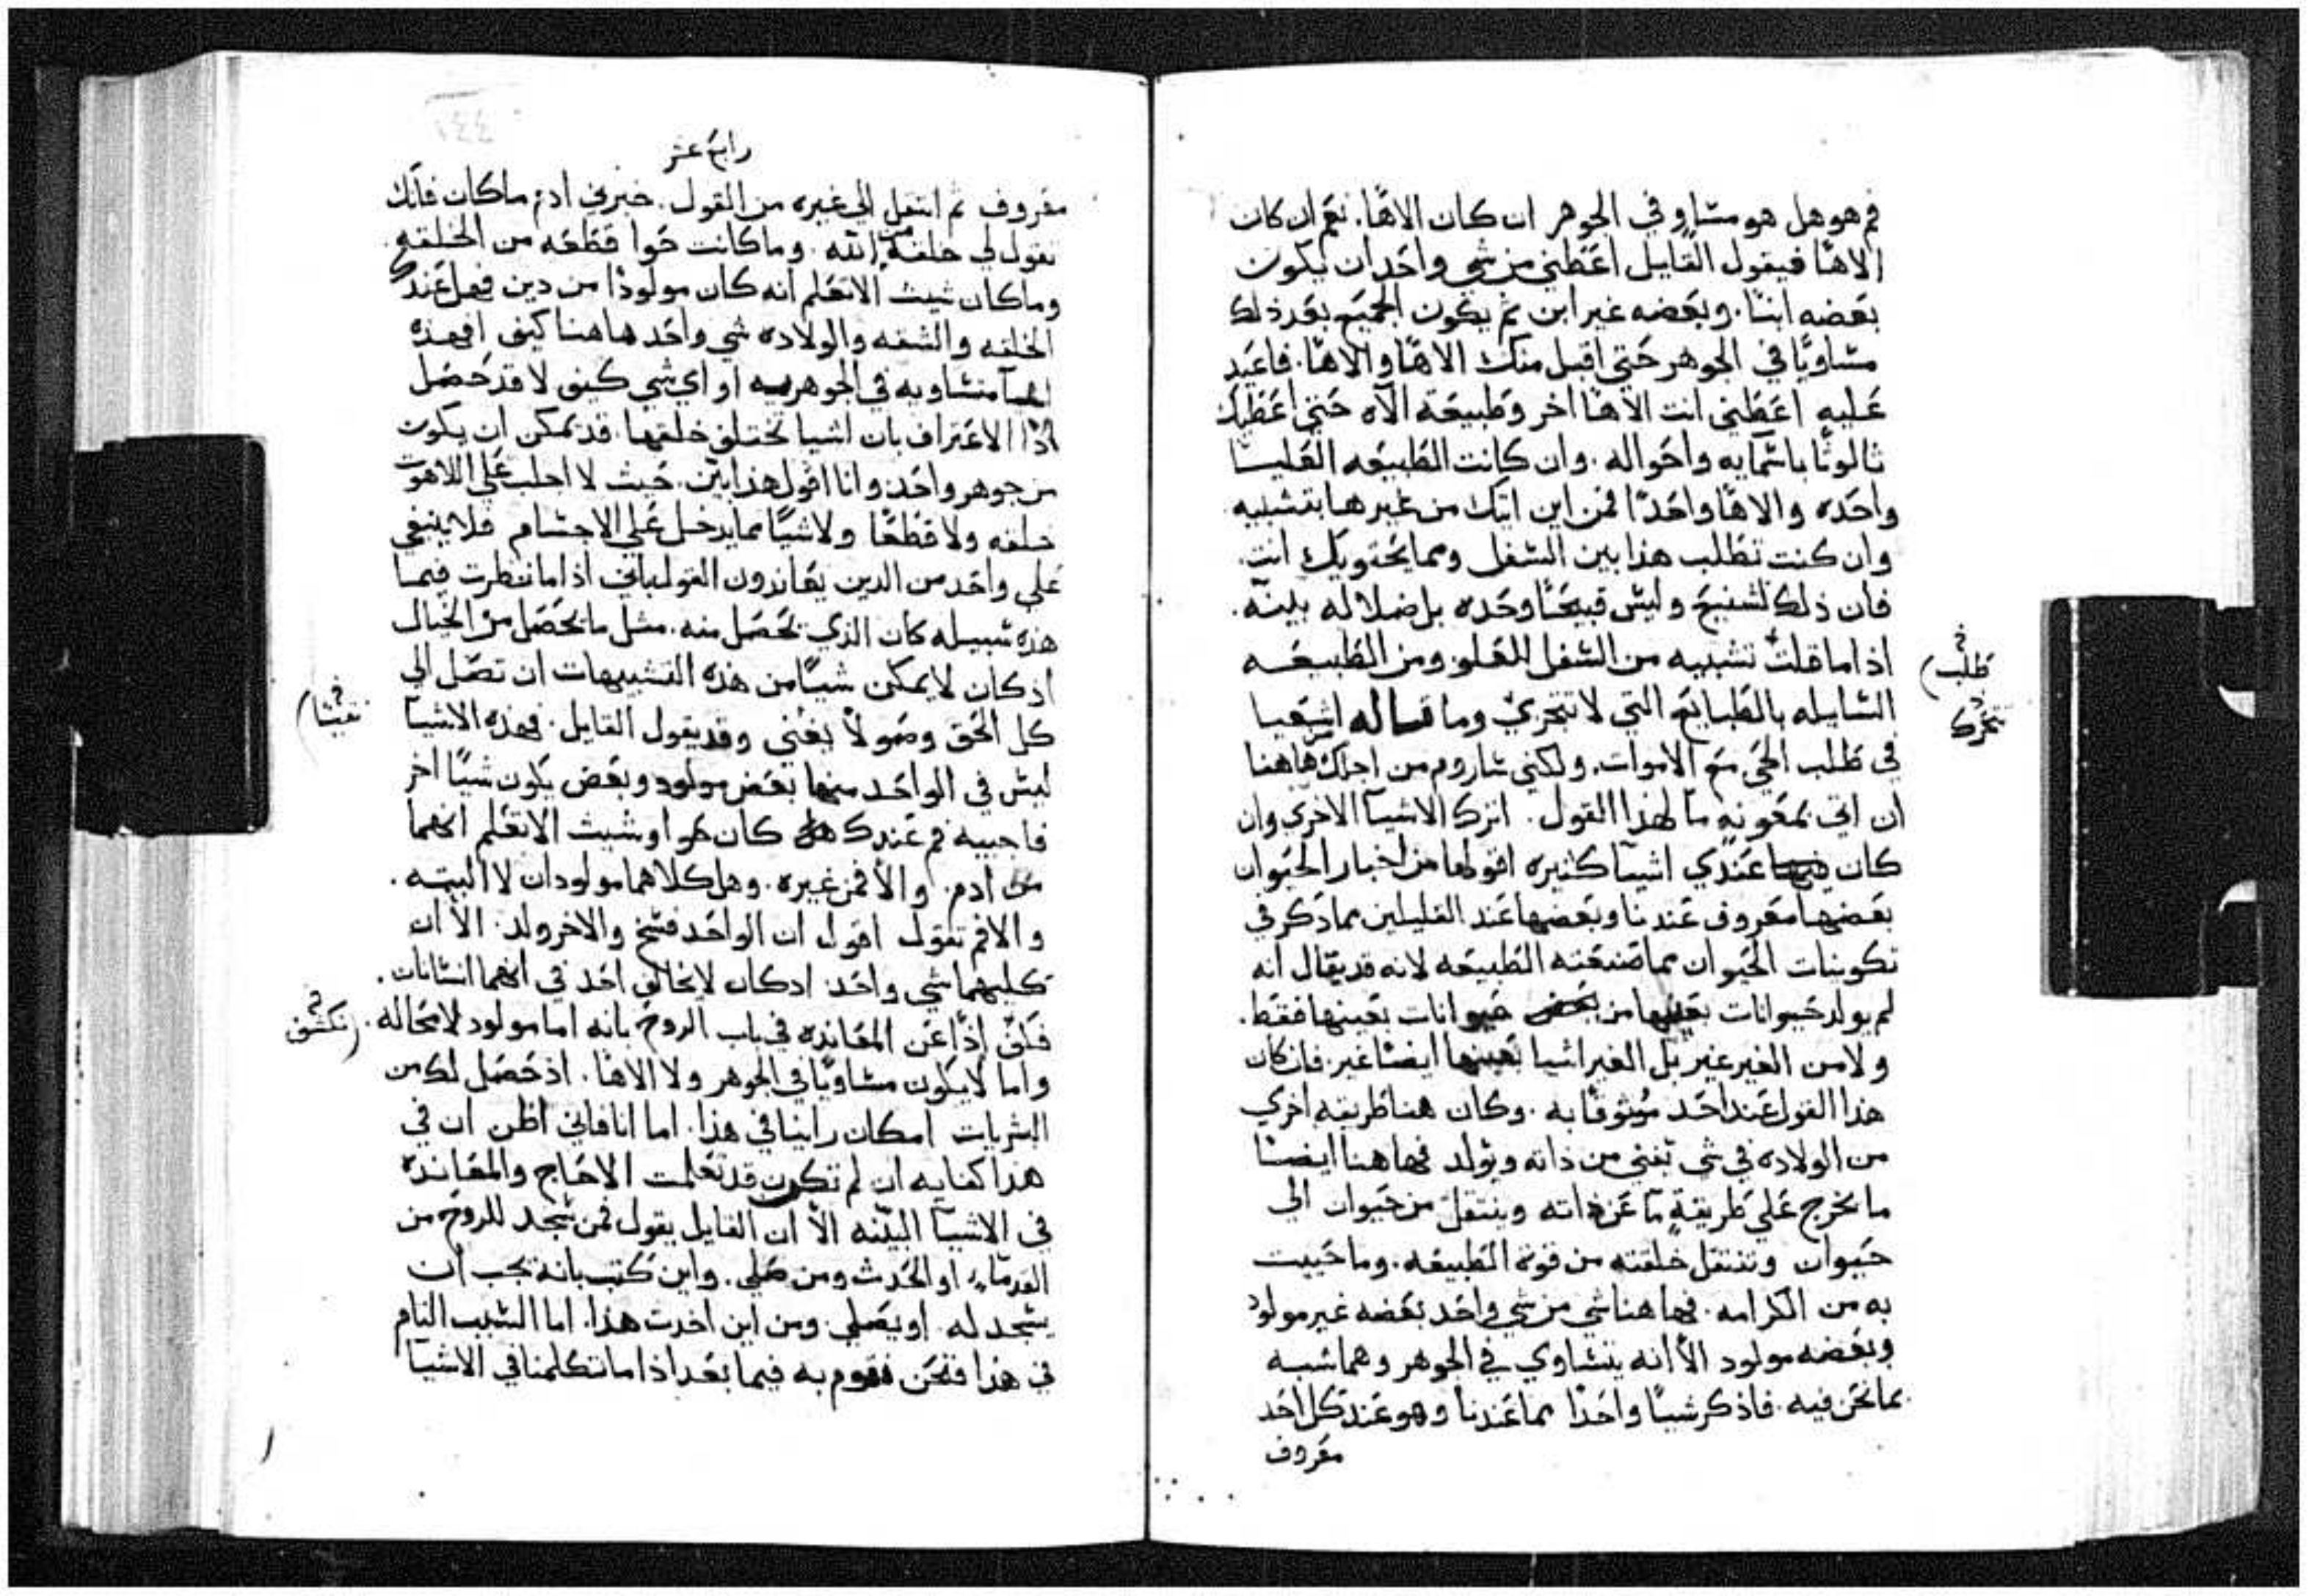 فم هو هل هو مساو في الجوهر ان كان الاهًا. نعم ان كان
الاهًا فيقول القايل اعطني من شي واحد ان يكون
بعضه ابنًا. وبعضه غير ابن ثم يكون الجميع بعد ذلك
مساويًا في الجوهر حتي اقبل منك الاهًا والاهًا. فاعيد
عليه اعطني انت الاهًا اخر وطبيعة الآه حتي اعطيك
ثالوثًا باسمآيه واحواله. وان كانت الطبيعه العليا
واحده والاهًا واحدًا فمن اين اتيك من غيرها بتشبيه
وان كنت تطلب هذا بين السفل ومما يحتويك انت.
فان ذلك لشنيع وليس قبيحًا وحده بل ضلاله بينه.
اذا ما قلت تشبيه من السفل للعلو ومن الطبيعه
السايله بالطبايع التي لا تتحرك وما قاله اشعيا
في طلب الحي مع الاموات. ولكني ساروم من اجلك هاهنا
طلب
تتحرك
ان اتي بمعونةٍ مآ لهذا القول. اترك الاشيآ الاخري وان
كان عندي اشيآ كثيره اقولها من اخبار الحيوان
بعضها معروف عندنا وبعضها عند القليلين مما ذكر في
تكوينات الحيوان مما صنعته الطبيعه لانه قد يقال انه
لم يولد حيوانات بعينها من بعض حيوانات بعينها فقط.
ولا من الغير غير بل الغير اشيا بعينها ايضًا غير. فان كان
هذا القول عند احد موثوقًا به. وكان هنا طريقه اخري
من الولاده في شي يفني من ذاته ويولد فهاهنا ايضًا
ما يخرج علي طريقةٍ مآ عن ذاته وينتقل من حيوان الي
حيوان وتنتقل خلقته من قوة الطبيعه. وما حبيت
به من الكرامه. فهاهنا شي من شي واحد بعضه غير مولود
وبعضه مولود الأ انه يتساوي في الجوهر وهما شبه
بما نحن فيه. فاذكر شيًا واحدًا مما عندنا وهو عند كل احد
معروف
رابع عشر
معروف ثم انتقل الي غيره من القول. خبرني ادم ما كان فانك
تقول لي خلقة من الله. وما كانت حوا قطعه من الخلقه.
وما كان شيث الا تعلم انه كان مولودًا من دين فهل عندك
الخلقه والشقه والولاده شي واحد هاهنا كيف افهذه
متساويه في الجوهر او اي شي كيف لا قد حصل
اذًا الاعتراف بان اشيا تختلف خلقتها. قد تمكن ان يكون
من جوهر واحد وانا اقول هذا بين. حيث لا اجلب علي اللاهوت
خلقه ولا قطعًا ولا شيًا مما يدخل علي الاجسام فلا ينبغي
علي واحد من الدين يعاندون القول باني اذا ما نظرت فيما
هذه سبيله كان الذي تحصل منه. مثل ما يحصل من الخيال
اذ كان لا يمكن شيًا من هذه التشبيهات ان تصل الي
كل الحق وهو لا يغني وقد يقول القايل. فهذه الاشيآ
ليس في الواحد منها بعض مولود وبعض يكون شيًا اخر
فاجيبه فم عندك هل كان حوا وشيث الا تعلم انهما
من ادم. والأ فمن غيره. وهل كلاهما مولودان لا البته.
والا فم تقول اقول ان الواحد فسخ والاخر ولد. الأ ان
كليهما شي واحد. اذ كان لا يخالف احد في انهما انسانان.
فكف اذًا عن المعانده في باب الروح بانه اما مولود لا محاله.
تكشف
واما لا يكون مساويًا في الجوهر ولا الاهًا. اذ حصل لك من
البشريات امكان راينا في هذا. اما انا فاني اظن ان في
هذا كفايه ان لم تكون قد تعلمت الاحاج والمعانده
في الاشيآ البينه الأ ان القايل يقول فمن سجد للروح من
القدمآء او الحدث ومن صلي. واين كتب بانه يجب ان
يسجد له. او يصلي. ومن اين اخدت هذا. اما السبب التام
في هذا فنحن نقوم به فيما بعد اذا ما تكلمنا في الاشيآ